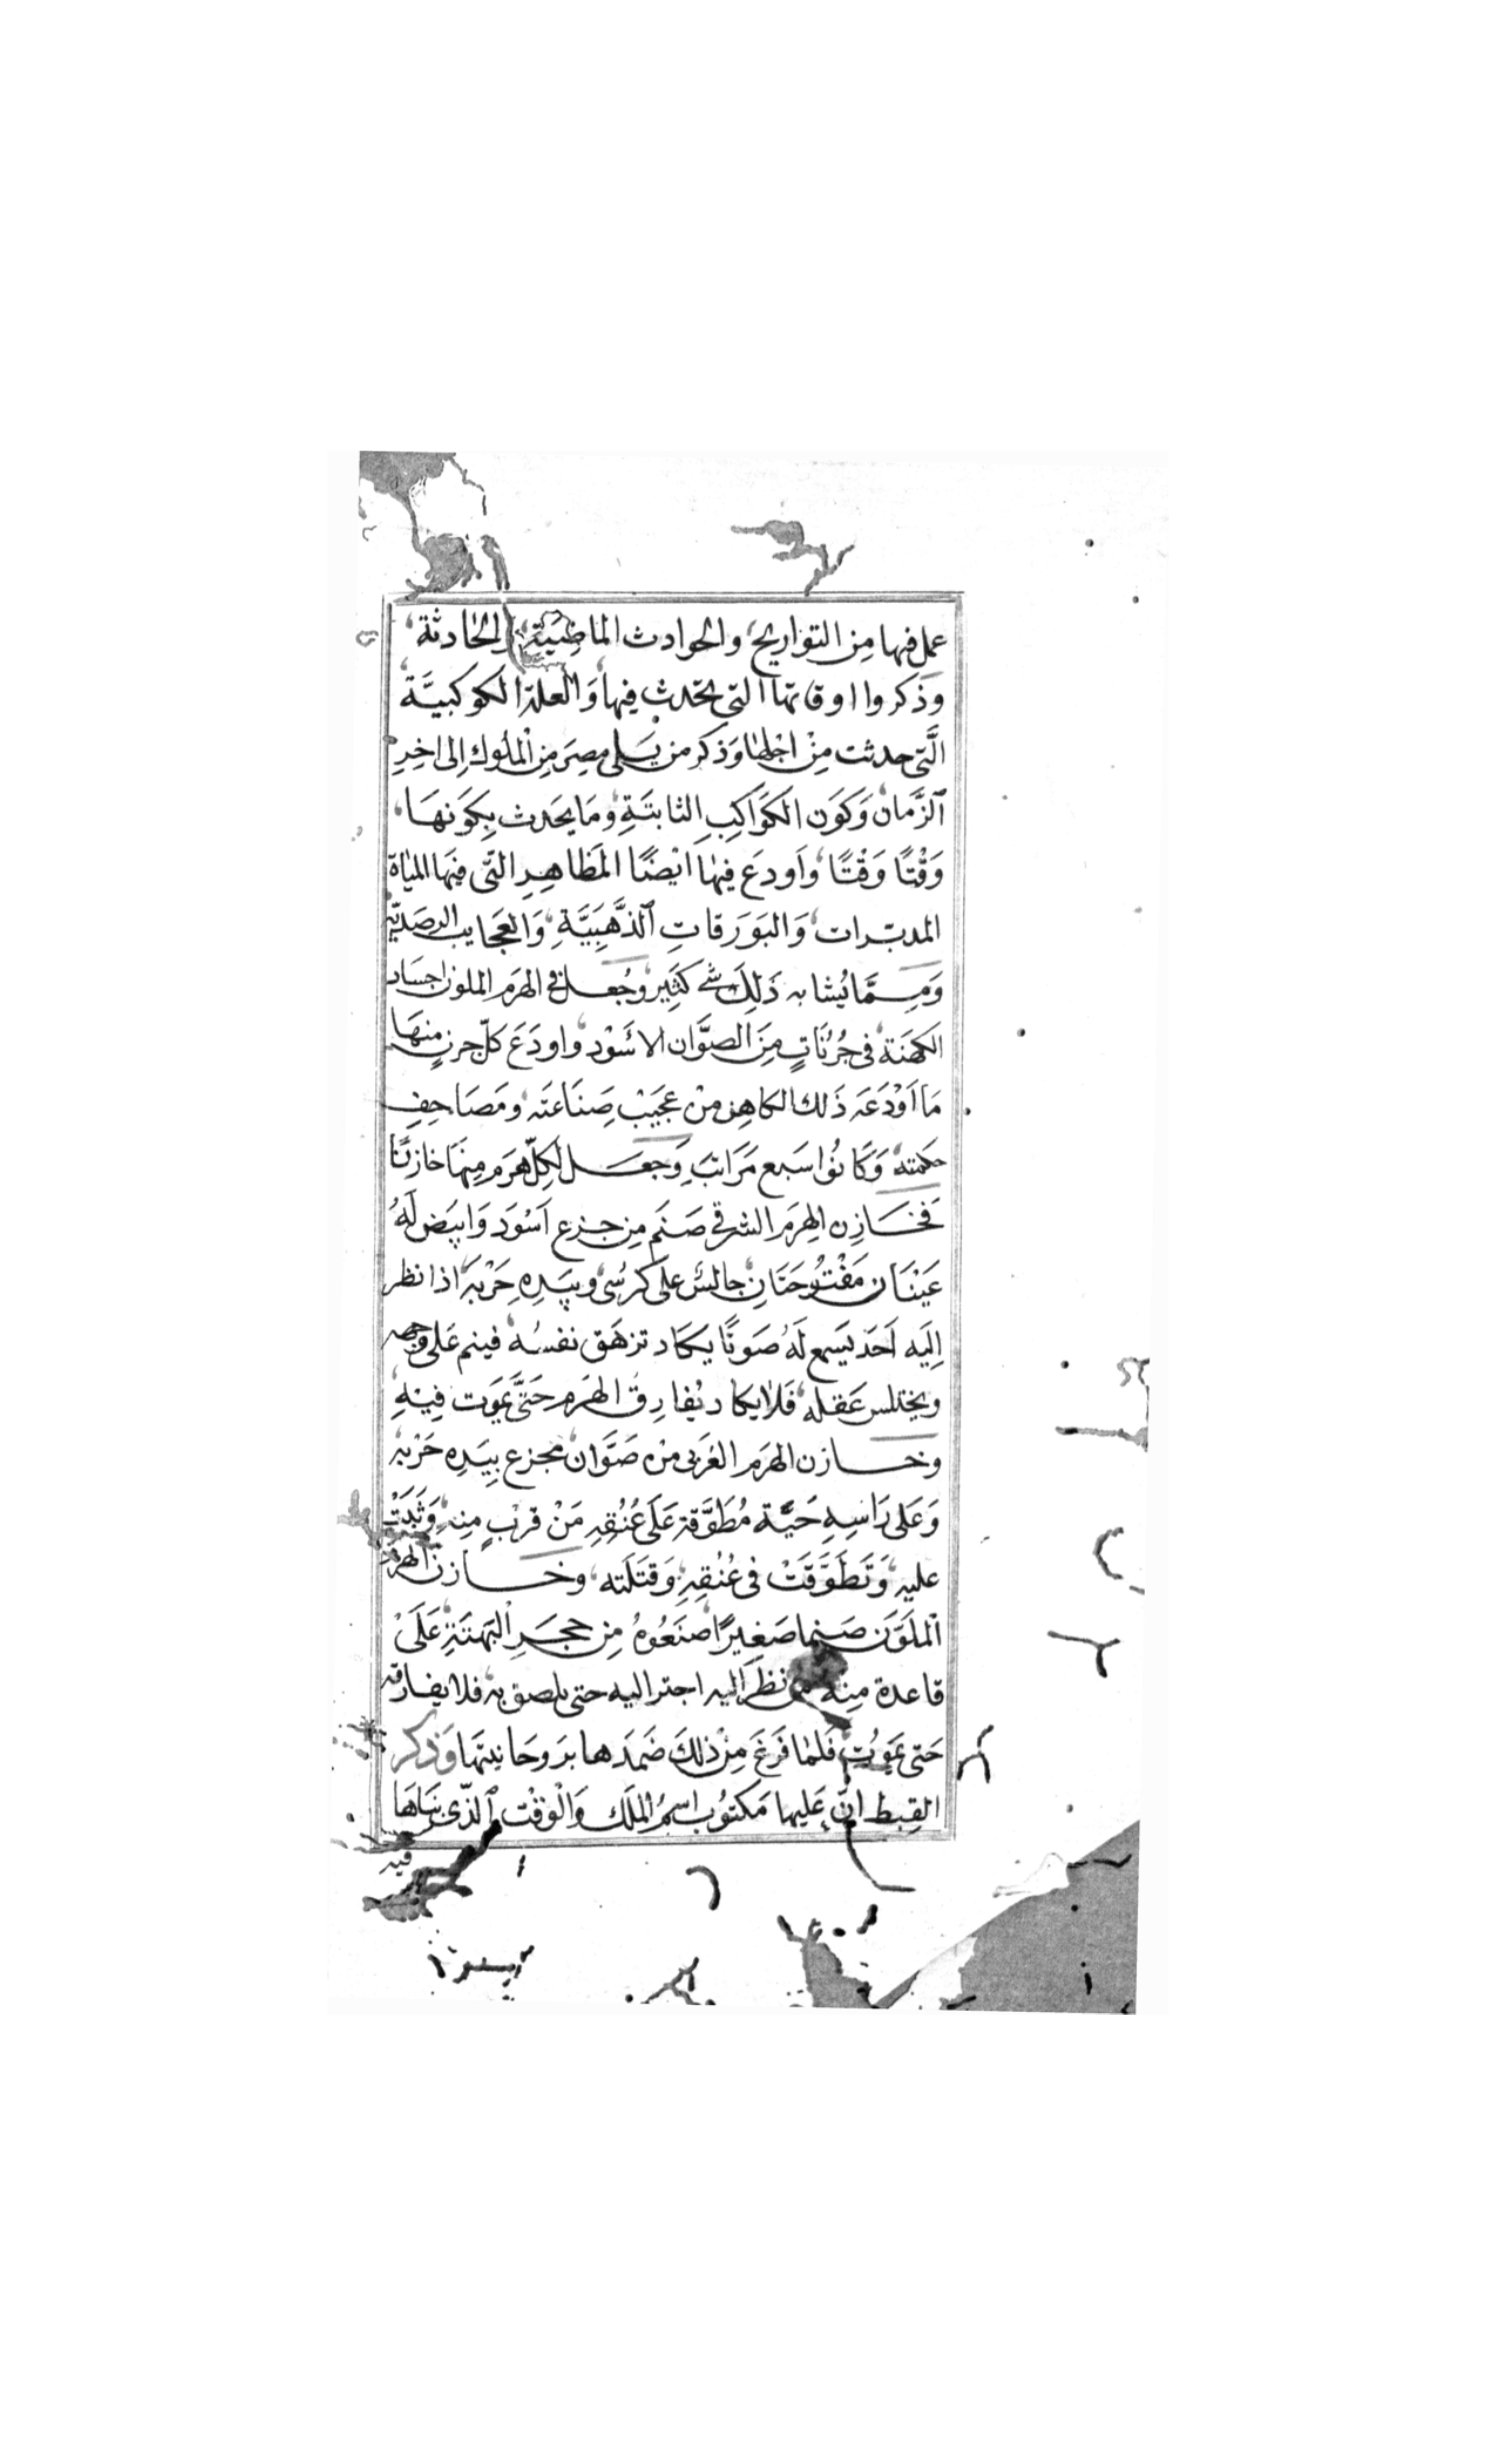 عمل فيها مِن التواريخ، والحوادث الماضِيَة، والحَادثة،
وَذكروا اوقاتها التي يحَدث فيها، وَالعلة الكوكبيَّة،
الَّتى حدثت مِنْ اجلها وَذكر من يَلى مِصرَ مِن الْملُوك اِلى اخِرِ
الزَّمان، وَكَون الكَوَاكِبِ الثابتَةِ، وَمَا يحَدث بِكَونهَا،
وَقْتًا وَقْتًا، وَاَودعَ فيهَا ايْضًا المظاهِر التَّى فيهَا المياة
المدبّرات، وَالبَوَرَقاتِ الذَّهَبِيَّةِ، وَالعَجايب الرصَديّة
وَمِمَّا يُشابه ذَلِكَ شىء كثَيِر، وَجُعَل فى الهرَم الملون اجسَاد
الكهَنَة، فى جُرُنَاتٍ مِنَ الصوَّان الاسْوَد، وَاودَعَ كلّ جرنٍ منهَا
مَا اَوْدَعَه ذَلك الكاهِن مِنْ عجَيْب صِنَاعَته، وَمَصَاحِفِ
حكمته، وَكَانُوا سَبع مَرَاتبَ، وَجَعَل لِكلّ هَرَم مِنهَا خازنًا
فَخَازِن الهِرَم الشرقى صَنَم مِن جزع اَسْوَد وَابيَض لَهُ
عَيْنَان مَفْتُوحَتَانِ، جالسٌ على كرسُى، وَبيَدِه حَرْبَة، اذا نظر
اِلَيه اَحَد يَسَمع لَهُ صَوتًا يكاد تزهَق نفسُه، فينم عَلى وجهه
ويختلس عَقله، فَلا يكاد يُفارِق الهَرَم حَتَّى يمَوت فِيْهِ،
وخازن الهرَم الغَربى مْن صَوَّان، مجزع بِيَدِه حَرْبة
وَعَلى رَاسِهِ حَيَّة مُطَوَّقة عَلَى عُنُقِهِ مَنْ قرْب منِه، وَثَبَتْ
عليهِ، وَتَطَوَّقَتْ فى عُنُقِهِ، وَقتَلَته، وخَازن الهرَم
الملَوَّن صَنِما صَغيرًا صَنَعُوهُ مِن حجَرِ الْبَهتَةِ، عَلَىْ
قاعدة مِنِه، من نظَر اليه اجتر اليه حتى يلصق به، فلا يفارقه
حَتى يمَوُت، فَلما فَرَغَ مِنْ ذلكَ ضَمَدها برَوحَانيتهَا وَذكر
القِبط انّ عَليها مَكتوُب اسمُ الملَك وَالوْقْت الذّى بَنَاهَا
فيه